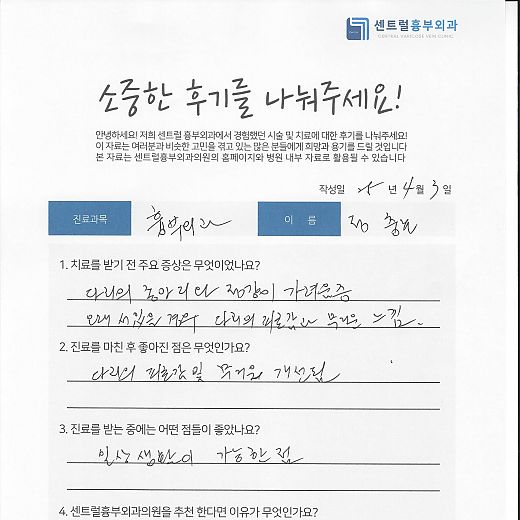 센트럴흉부외과
CENTRAL VARICOSE VEIN CLINIC
소중한 후기를 나눠주세요!
안녕하세요! 저희 센트럴 흉부외과에서 경험했던 시술 및 치료에 대한 후기를 나눠주세요!
이 자료는 여러분과 비슷한 고민을 겪고 있는 많은 분들에게 희망과 용기를 드릴 것입니다
본 자료는 센트럴흉부외과의원의 홈페이지와 병원 내부 자료로 활용될 수 있습니다
작성일 25 년 4 월 3 일
진료과목 흉부외과 이 름
1. 치료를 받기 전 주요 증상은 무엇이었나요?
다리의 종아리와 정강이 가려움증
오래 서있을 경우 다리의 피로감과 무거운 느낌.
2. 진료를 마친 후 좋아진 점은 무엇인가요?
다리의 피로감 및 무거움 개선됨
3. 진료를 받는 중에는 어떤 점들이 좋았나요?
일상 생활이 가능한 점
4. 센트럴흉부외과의원을 추천 한다면 이유가 무엇인가요?